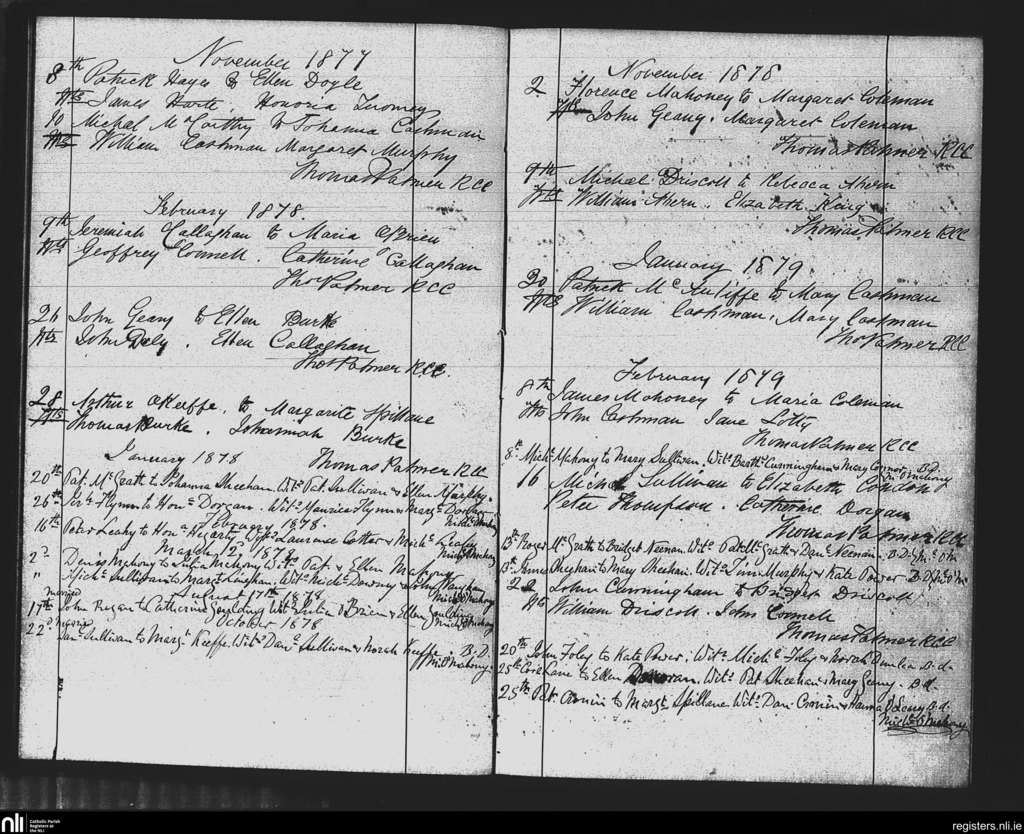 November 1877
8th Patrick Hayes to Ellen Doyle
Wts James Harte, Honoria Twomey
10 Michal McCarthy to Johanna Cashman
Wts William Cashman Margaret Murphy
Thomas Palmer RCC
February 1878.
9th Jeremiah Callaghan to Maria O'Brien
Wts Geoffrey Connell. Catherine Callaghan
Thos Palmer RCC
26 John Geany to Ellen Burke
Wts John Daly. Ellen Callaghan
Thos Palmer RCC.
28 Arthur O'Keeffe, to Margarite Spillane
Wts Thomas Burke. Johannah Burke
Thomas Palmer RCC
January 1878
20th Pat. McGrath to Johanna Sheehan. Wits Pat. Sullivan & Ellen Murphy.
26th Flynn to Hon. Dorgan. Wits Maurice Flynn & Margt Dorgan
February 1878.
16th Peter Leahy to Hona Hegarty. Wits Laurence Cotter & Michl Leahy
March 2d 1878
2d Denis Mahony to Julia Mahony Wits Pat. & Ellen Mahony
" Michl Sullivan to Margt Wits Michl Downey &
August 17th 1878
17th John Regan to Catherine Goulding Wits Julia O'Brien & Ellen Goulding
October 1878
22d Danl Sullivan to Margt Keeffe. Wits Danl Sullivan & Norah Keeffe. B.D.
Ml O'Mahony.
November 1878
2. Florence Mahoney to Margaret Coleman
Wts John Geany. Margaret Coleman
Thomas Palmer RCC
9th Michael Driscoll to Rebecca Ahern
Wts William Ahern. Elizabeth King
Thomas Palmer RCC
January 1879
30 Patrick McAuliffe to Mary Cashman
Wts William Cashman, Mary Cashman
Thos Palmer RCC
February 1879
8th James Mahoney to Maria Coleman
Wts John Cashman Jane
Thomas Palmer RCC
8th Michl Mahony to Mary Sullivan. Wits Barthw Cunningham & Mary Connor. B.D.
Ml O'Mahony
16 Michal Sullivan to Elizabeth Condon
Peter Thompson. Catherine Dorgan
Thomas Palmer RCC
13th Roger McGrath to Bridget Neenan. Wits Pat McGrath & Danl Neenan. B.D.
James Sheehan to Mary Sheehan. Wits Tim Murphy & Kate Power B.D.
22 John Cunningham to Bridget Driscoll
Wts William Driscoll. John Connell
Thomas Palmer RCC
20th John Foley to Kate Power. Wits Michl Foley & Norah B.d.
25th Lane to Ellen Donovan. Wits Pat Sheehan & Mary Geany. B.d.
25th Pat. Cronin to Margt Spillane Wits Danl Cronin & Hanna O'Leary B.d.
Michl O'Mahony
nli
Catholic Parish
Registers at
the NLI
registers.nli.ie